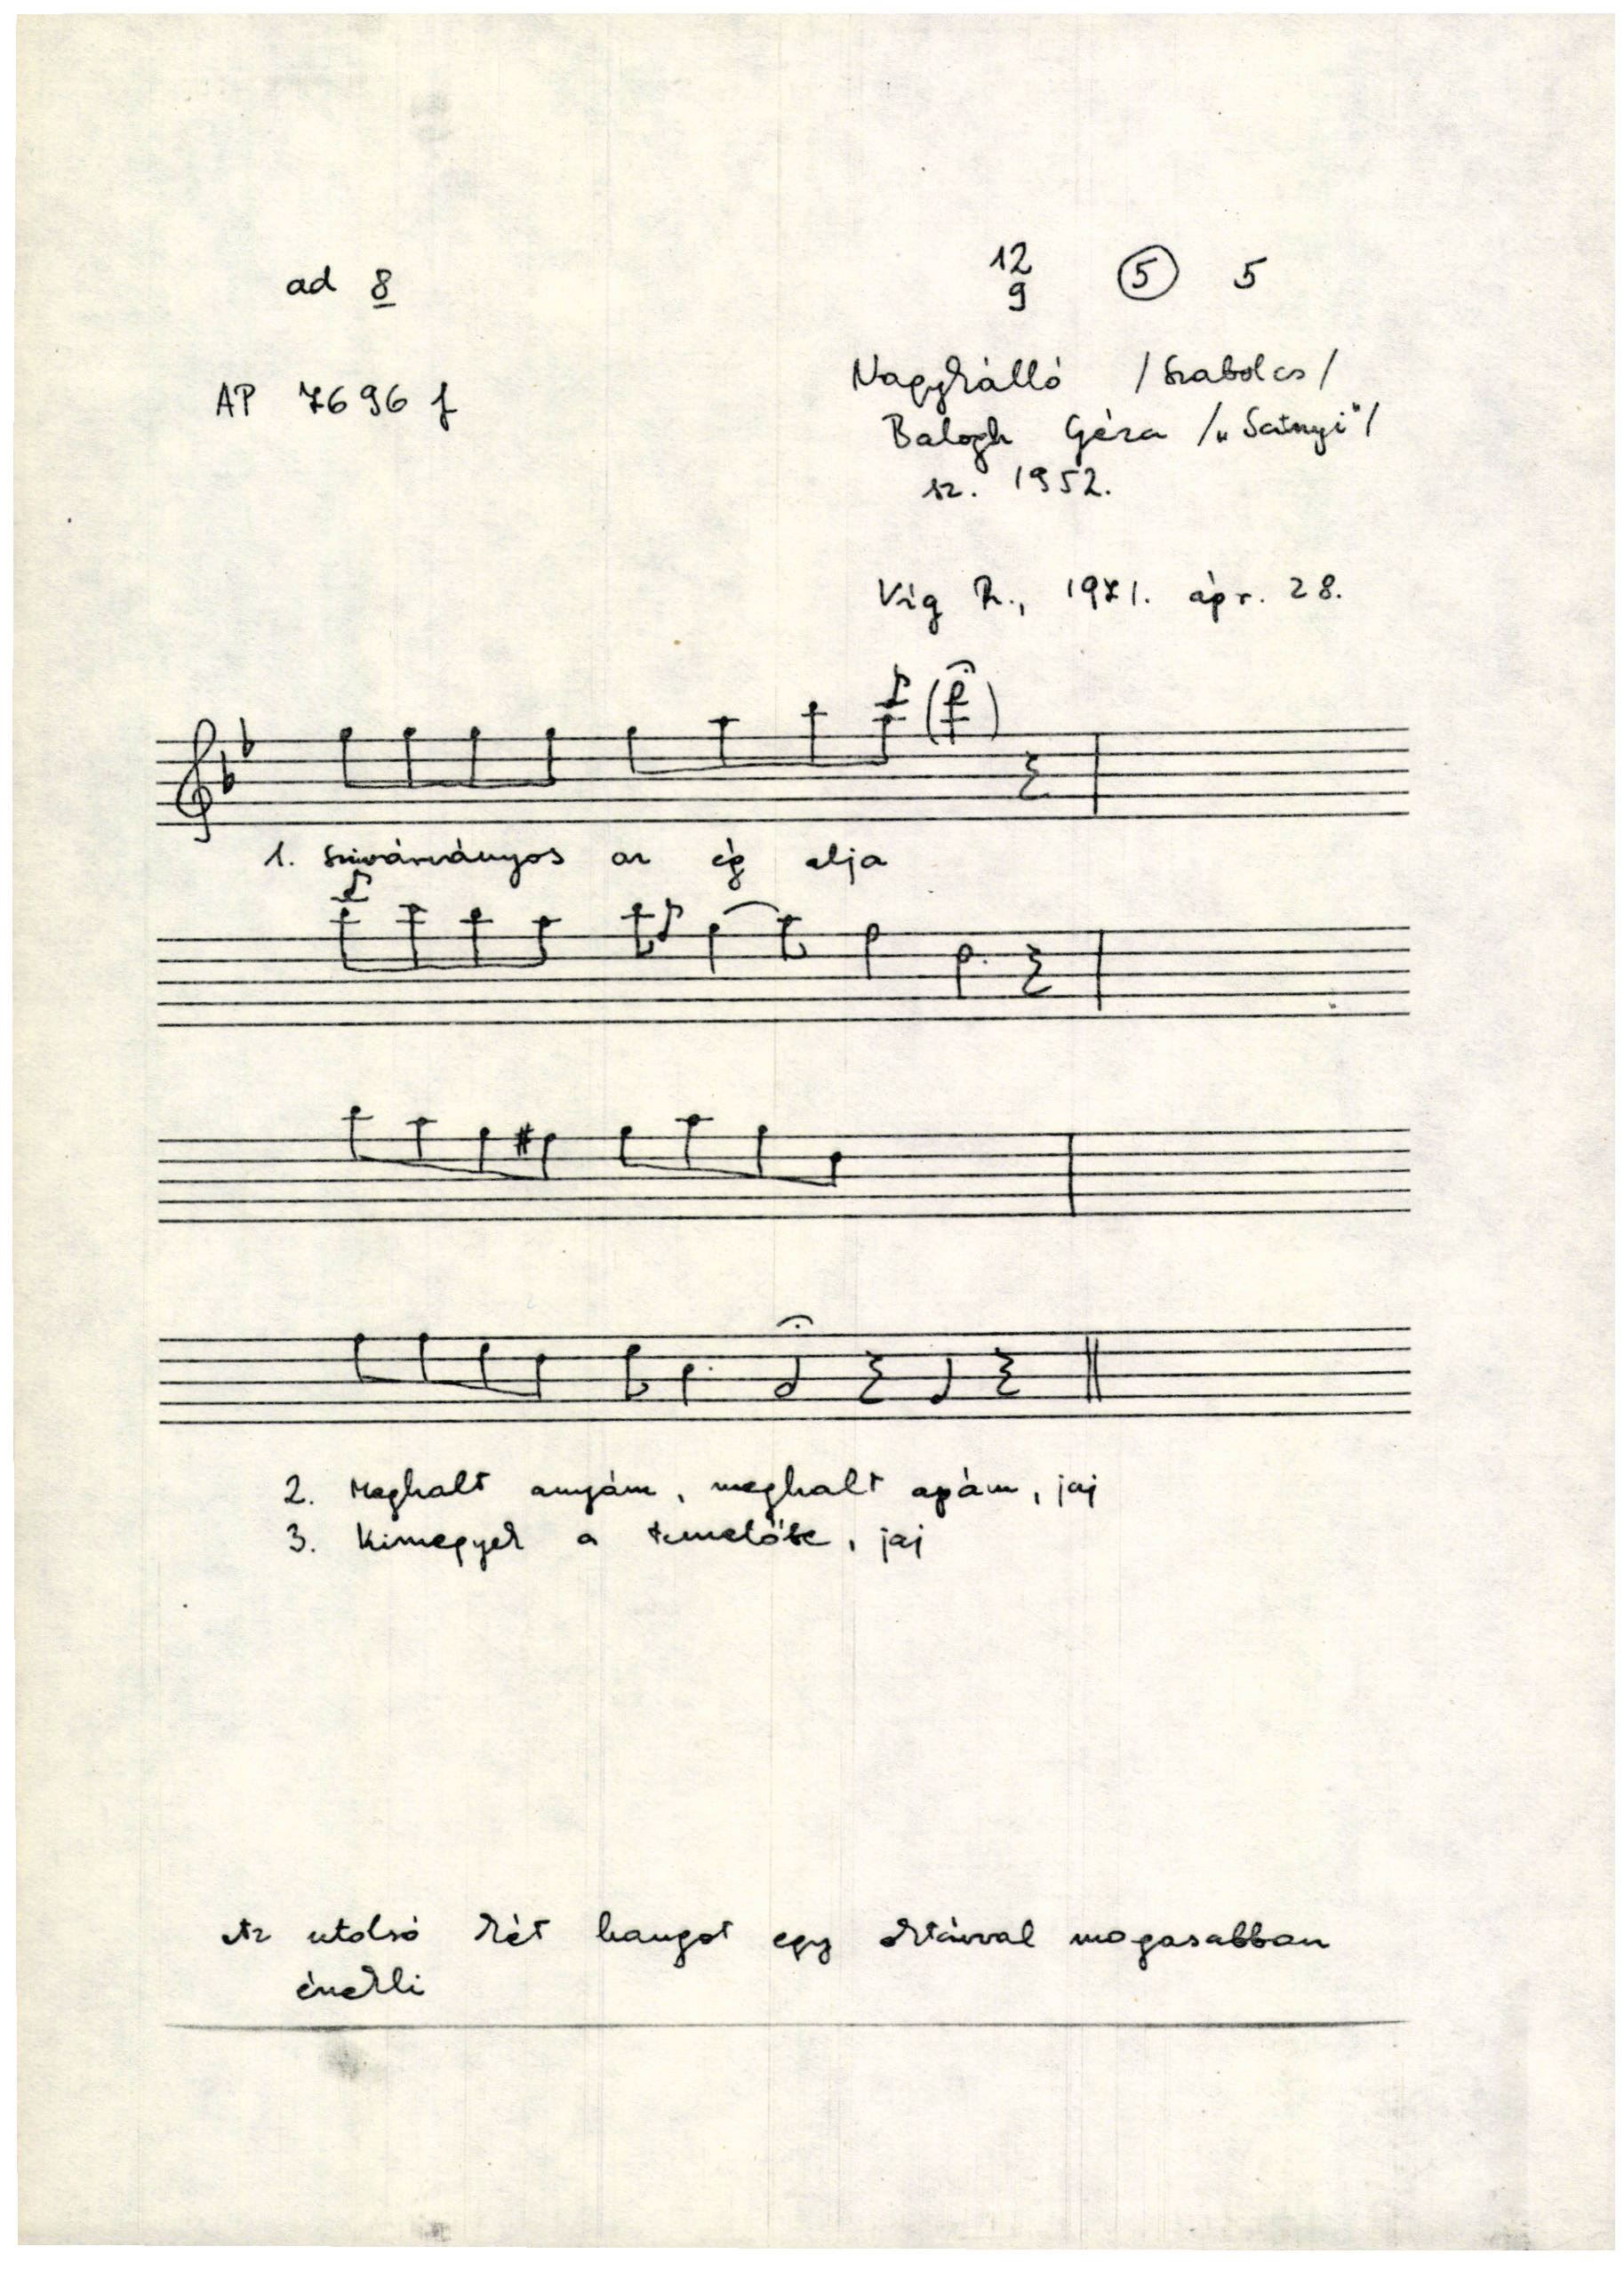 ad 8
12
9
5 5
AP 7696 f
Nagykálló /Szabolcs/
Balogh Géza /„Satnyi"/
sz. 1952.
Víg R., 1971. ápr. 28.
1. Szivárványos az ég alja
2. Meghalt anyám, meghalt apám, jaj
3. Kimegyek a temetőbe, jaj
Az utolsó két hangot egy oktávval magasabban
énekli